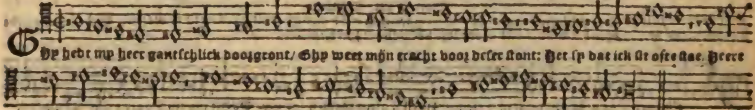 GHy hebt my heer gantschlick doorgront/ Ghy weet mijn tracht voor deser stont: Het sy dat ick sit ofte stae, Heere